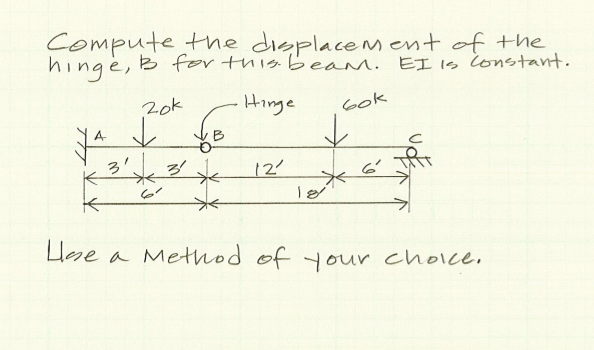 Compute the displacement of the
hinge, B for this beam. EI is constant.
20k Hinge 60k
A B C
3' 3' 12' 6'
6' 18'
Use a Method of your choice.